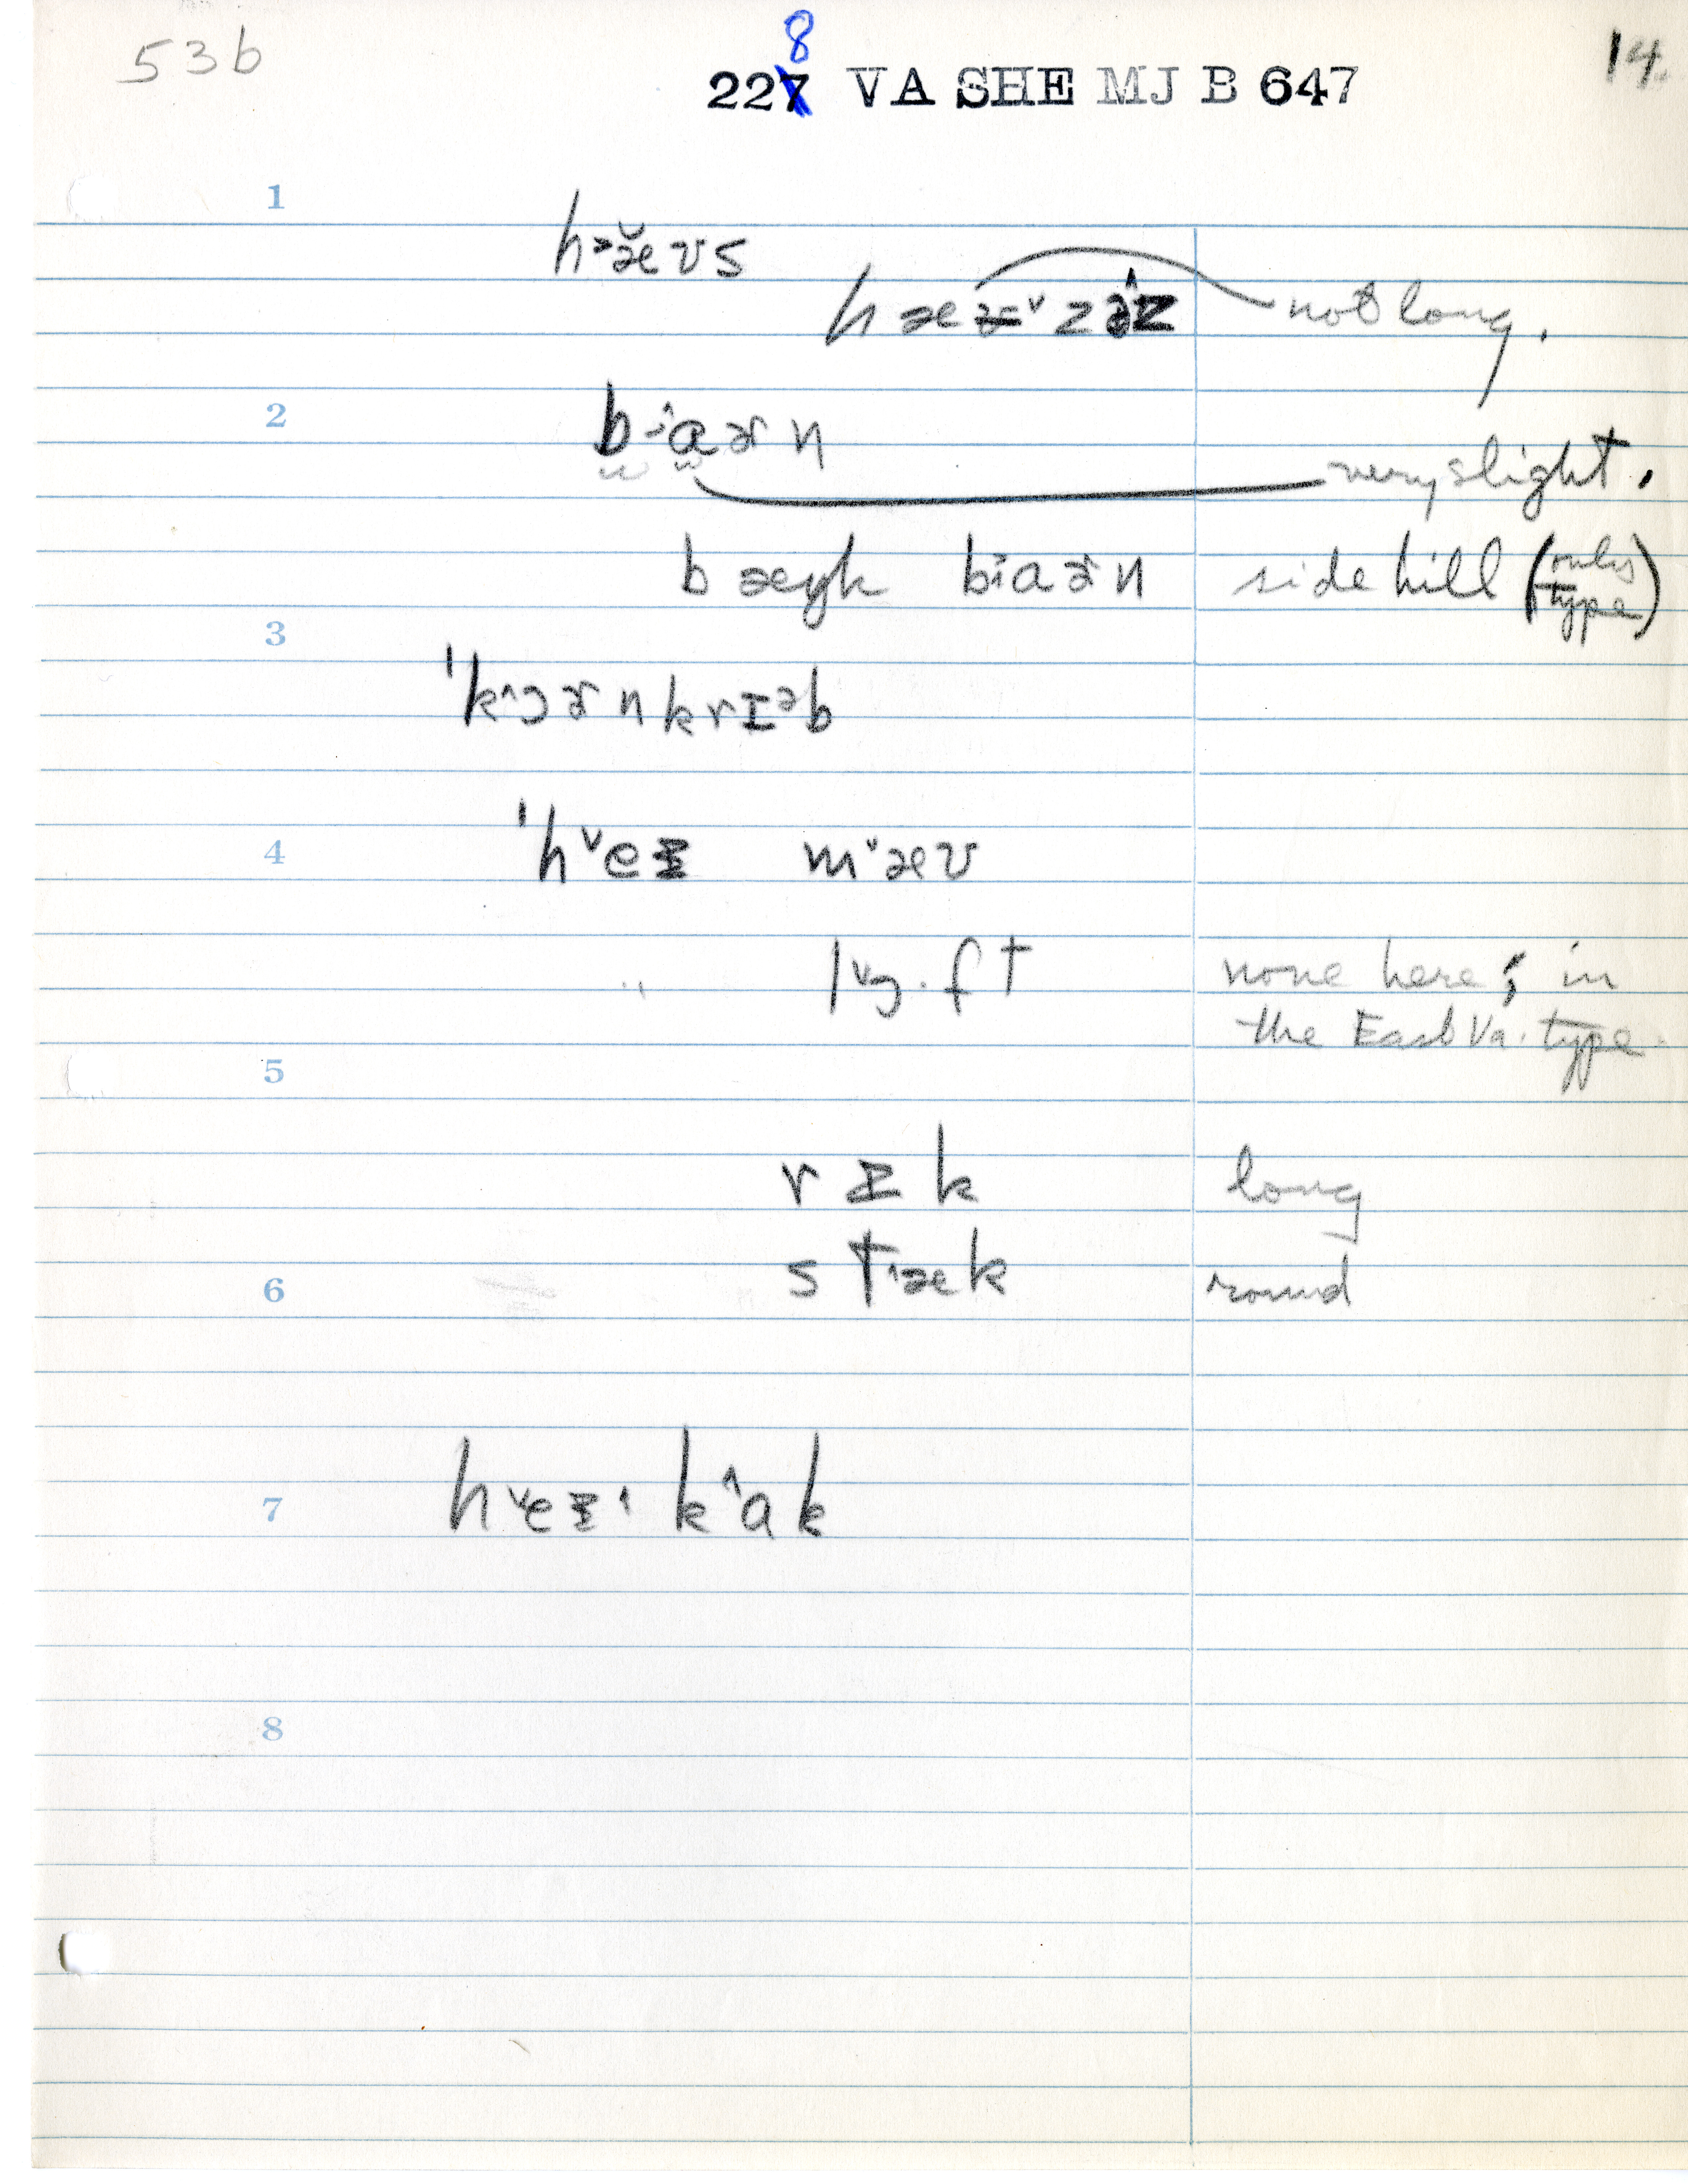 53b
8
227 VA SHE MJ B 647
14.
1
h˃æ̆ʊs
hæᵾ˅zə̂z not long.
2
b˔aɚn
very slight.
bæŋk b˔aɚn side hill (only type)
3
ˈk˄ɔɚnkrɪᵊb
4
ˈh˅eɪ m˅æʊ
" l˅ɔ·ft none here; in
the East Va. type.
5
rɪk long
st˄æk round
6
7
h˅eɪ˄ k˄ɑk
8